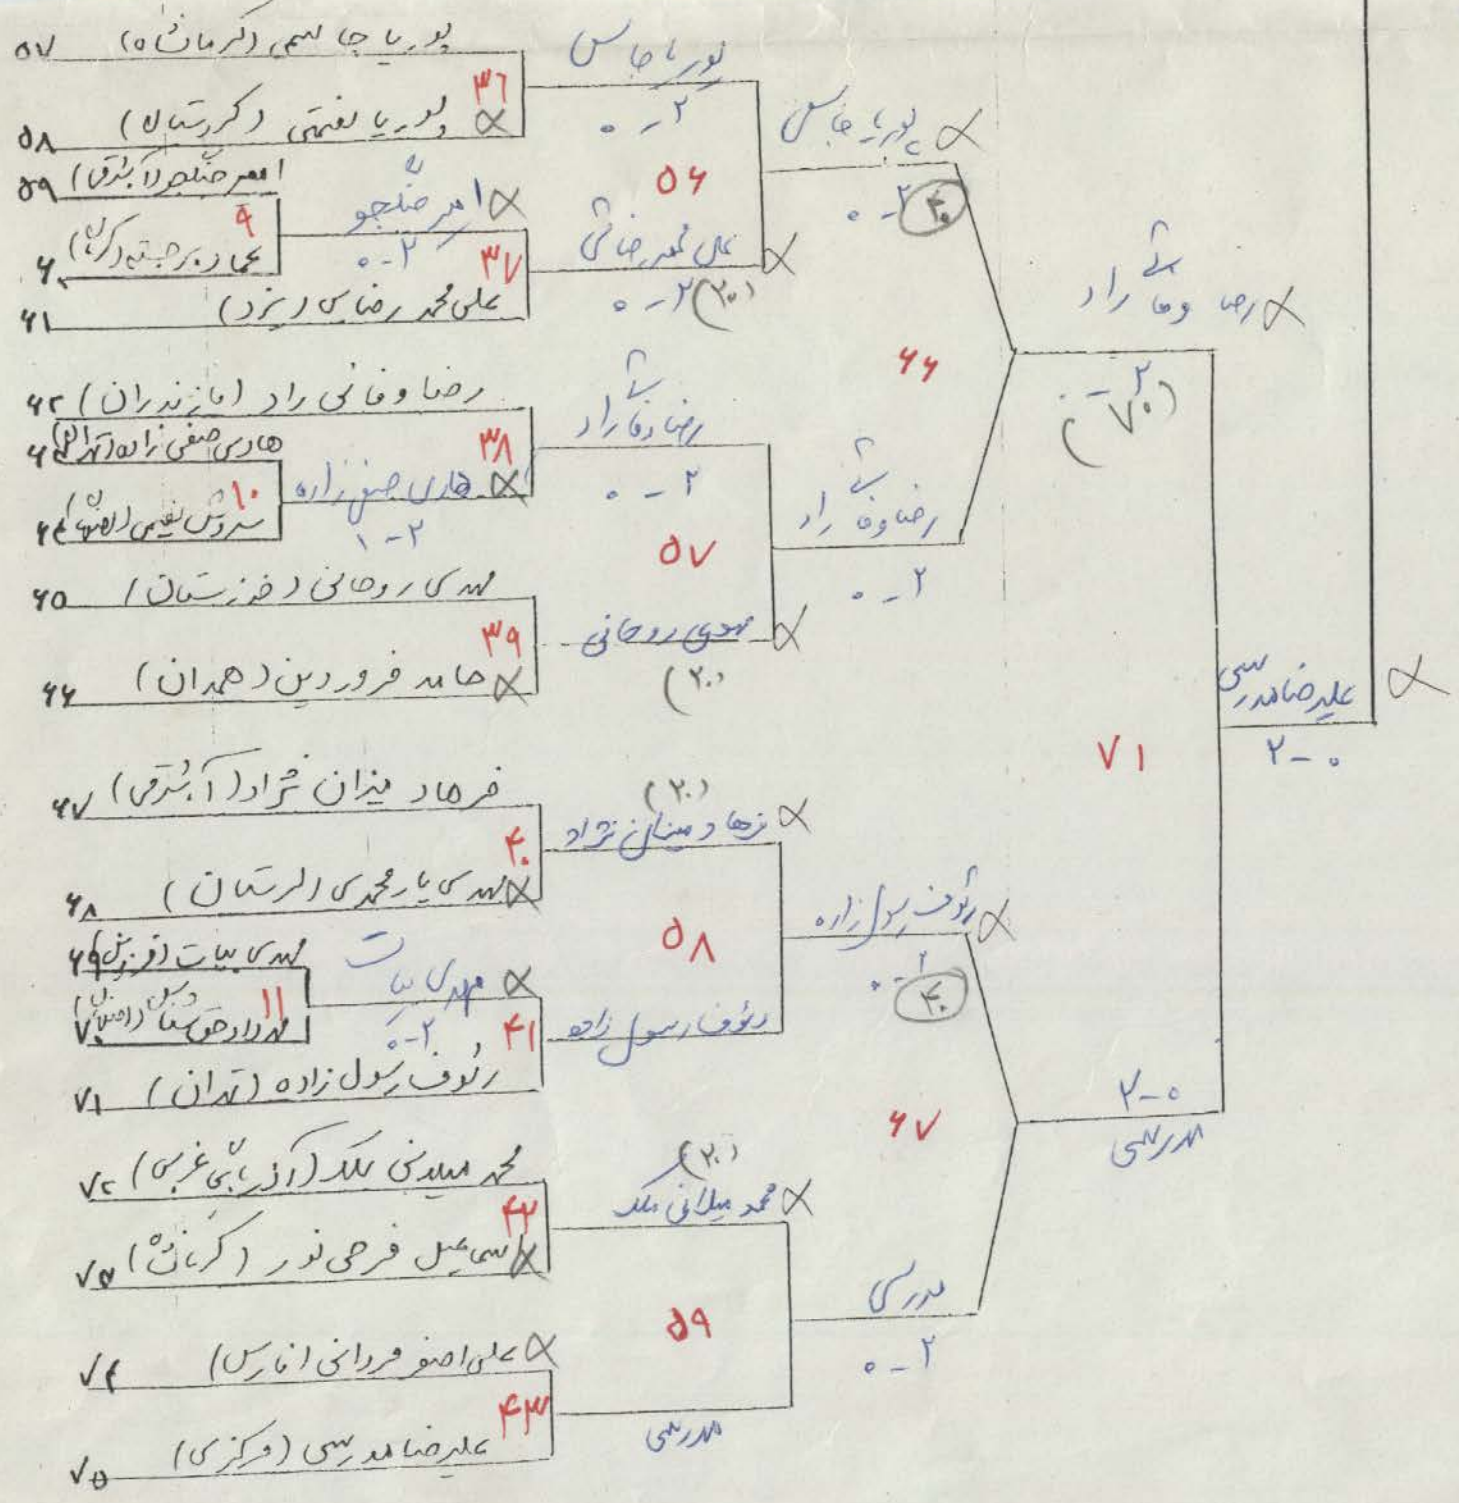 ۵۷ پوریا جاسمی (کرمانشاه)
۳۶
۵۸ پوریا نعمتی (کردستان)
۵۹ امیر جنگجو (آ.شرقی)
۹
۶۰ عماد برجسته (کرمان)
۳۷
۶۱ علی محمد رضایی (یزد)
۶۲ رضا وفائی راد (مازندران)
۳۸
۶۳ هادی صفی زاده (تهران)
۱۰
۶۴ سروش نعیمی
۶۵ مهدی روحانی (خوزستان)
۳۹
۶۶ حامد فروردین (همدان)
۶۷ فرهاد میزان نژاد (آ.شرقی)
۴۰
۶۸ مهدی یارمحمدی (لرستان)
۶۹ مهدی بیات
۱۱
۷۰ مهرداد حق شناس
۴۱
۷۱ رئوف رسول زاده (تهران)
۷۲ محمد میلانی ملک (آذربایجان غربی)
۴۲
۷۳ اسماعیل فرجی نور (کرمانشاه)
۷۴ علی اصغر مردانی (فارس)
۴۳
۷۵ علیرضا مدرسی (مرکزی)
امیر جنگجو
۲-۰
هادی صفی زاده
۲-۱
مهدی بیات
۲-۰
پوریا جاسمی
۲-۰
۵۶
علی محمد رضائی
۲-۰ (۳۰)
رضا وفائی راد
۲-۰
۵۷
مهدی روحانی
(۳۰)
(۳۰)
فرهاد میزان نژاد
۵۸
رئوف رسول زاده
(۳۰)
محمد میلانی ملک
۵۹
مدرسی
پوریا جاسمی
۲-۰
۴۰
۶۶
رضا وفائی راد
۲-۰
رئوف رسول زاده
۲-۰
۴۰
۶۷
مدرسی
۲-۰
رضا وفائی راد
۲-۰
(۷۰)
۷۱
۲-۰
مدرسی
علیرضا مدرسی
۲-۰